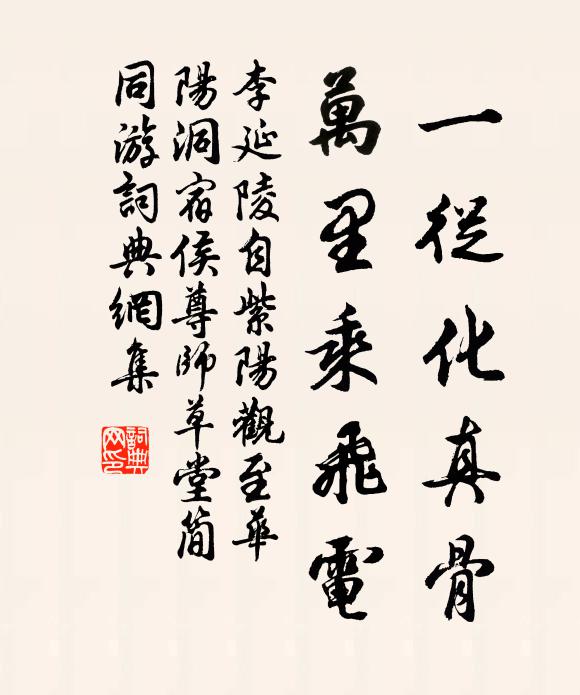 一從化真骨
萬里乘飛電
李延陵自紫陽觀至華
陽洞宿侯尊師草堂簡
同游詞典網集
詞典网印